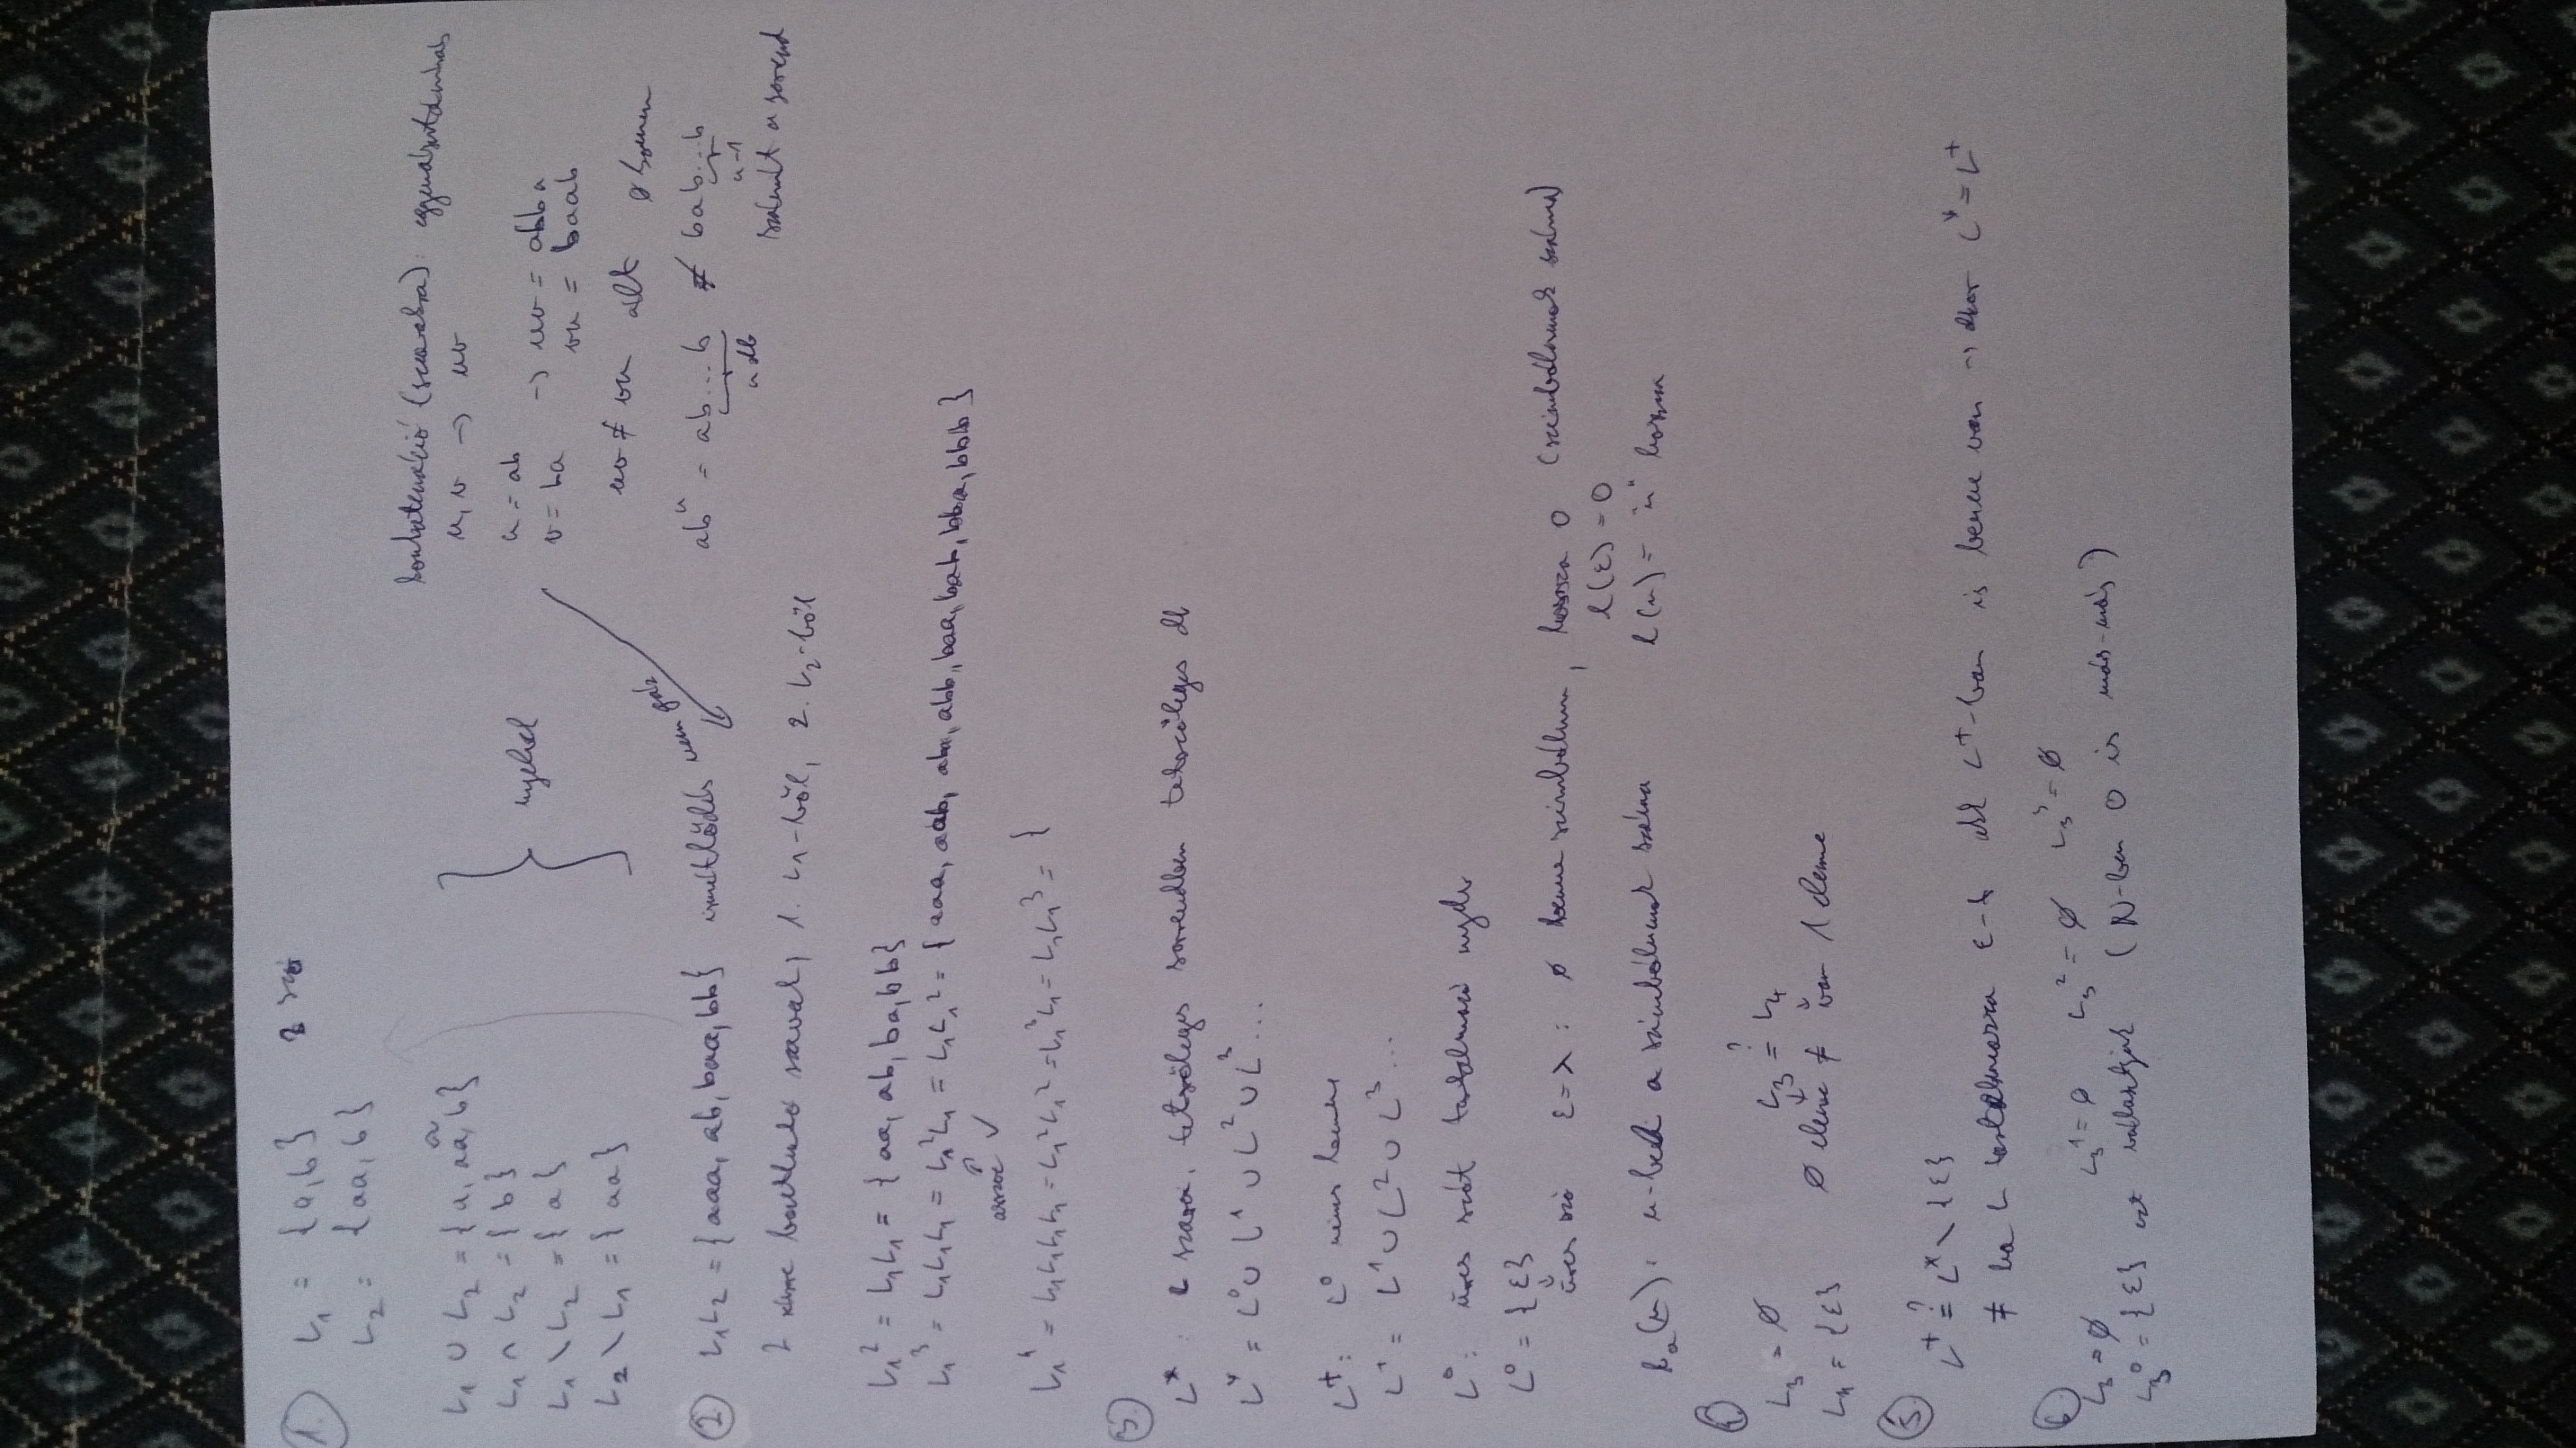 1. L₁ = {a, b} 2 szó
L₂ = {aa, b}
L₁ ∪ L₂ = {a, aa, b}
L₁ ∩ L₂ = {b}
L₁ \ L₂ = {a}
L₂ \ L₁ = {aa}
} nyelvek
konkatenáció (szavakra): egymásutánírás
u, v → uv
u = ab
v = ba → uv = abba
vu = baab
uv ≠ vu ált
abⁿ = ab...b ≠ bab...b
n db n-1
számít a sorrend
2. L₁L₂ = {aaa, ab, baa, bb} ismétlődés nem gáz
2 részre bontható szavak, 1. L₁-ből, 2. L₂-ből
L₁² = L₁L₁ = {aa, ab, ba, bb}
L₁³ = L₁L₁L₁ = L₁²L₁ = L₁L₁² = {aaa, aab, aba, abb, baa, bab, bba, bbb}
asszoc ✓
L₁⁴ = L₁L₁L₁L₁ = L₁²L₁² = L₁³L₁ = L₁L₁³ = {
3.
L* : L szavai, tetszőleges sorrendben tetszőleges db
L* = L⁰ ∪ L¹ ∪ L² ∪ L³ ...
L⁺: L⁰ nincs benne
L⁺ = L¹ ∪ L² ∪ L³ ...
L⁰: üres szót tartalmazó nyelv
L⁰ = {ε}
üres szó ε = λ : ∅ benne szimbólum, hossza 0 (szimbólumok száma)
l(ε) = 0
lₐ(u): u-beli a szimbólumok száma l(u) = "u" hossza
4.
L₃ = ∅ L₃ ≟ L₄
L₄ = {ε} ∅ eleme ≠ van 1 eleme
5.
L⁺ ≟ L* \ {ε}
≠ ha L tartalmazza ε-t akk L⁺-ban is benne van → ekkor L* = L⁺
6.
L₃ = ∅ L₃¹ = ∅ L₃² = ∅ L₃³ = ∅
L₃⁰ = {ε} ezt választjuk (ℕ-ben 0 is más-más)